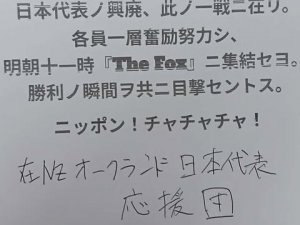 日本代表ノ興廃、此ノ一戦ニ在リ。
各員一層奮励努力シ、
明朝十一時『The Fox』ニ集結セヨ。
勝利ノ瞬間ヲ共ニ目撃セントス。
ニッポン！チャチャチャ！
在NZオークランド日本代表
応援団